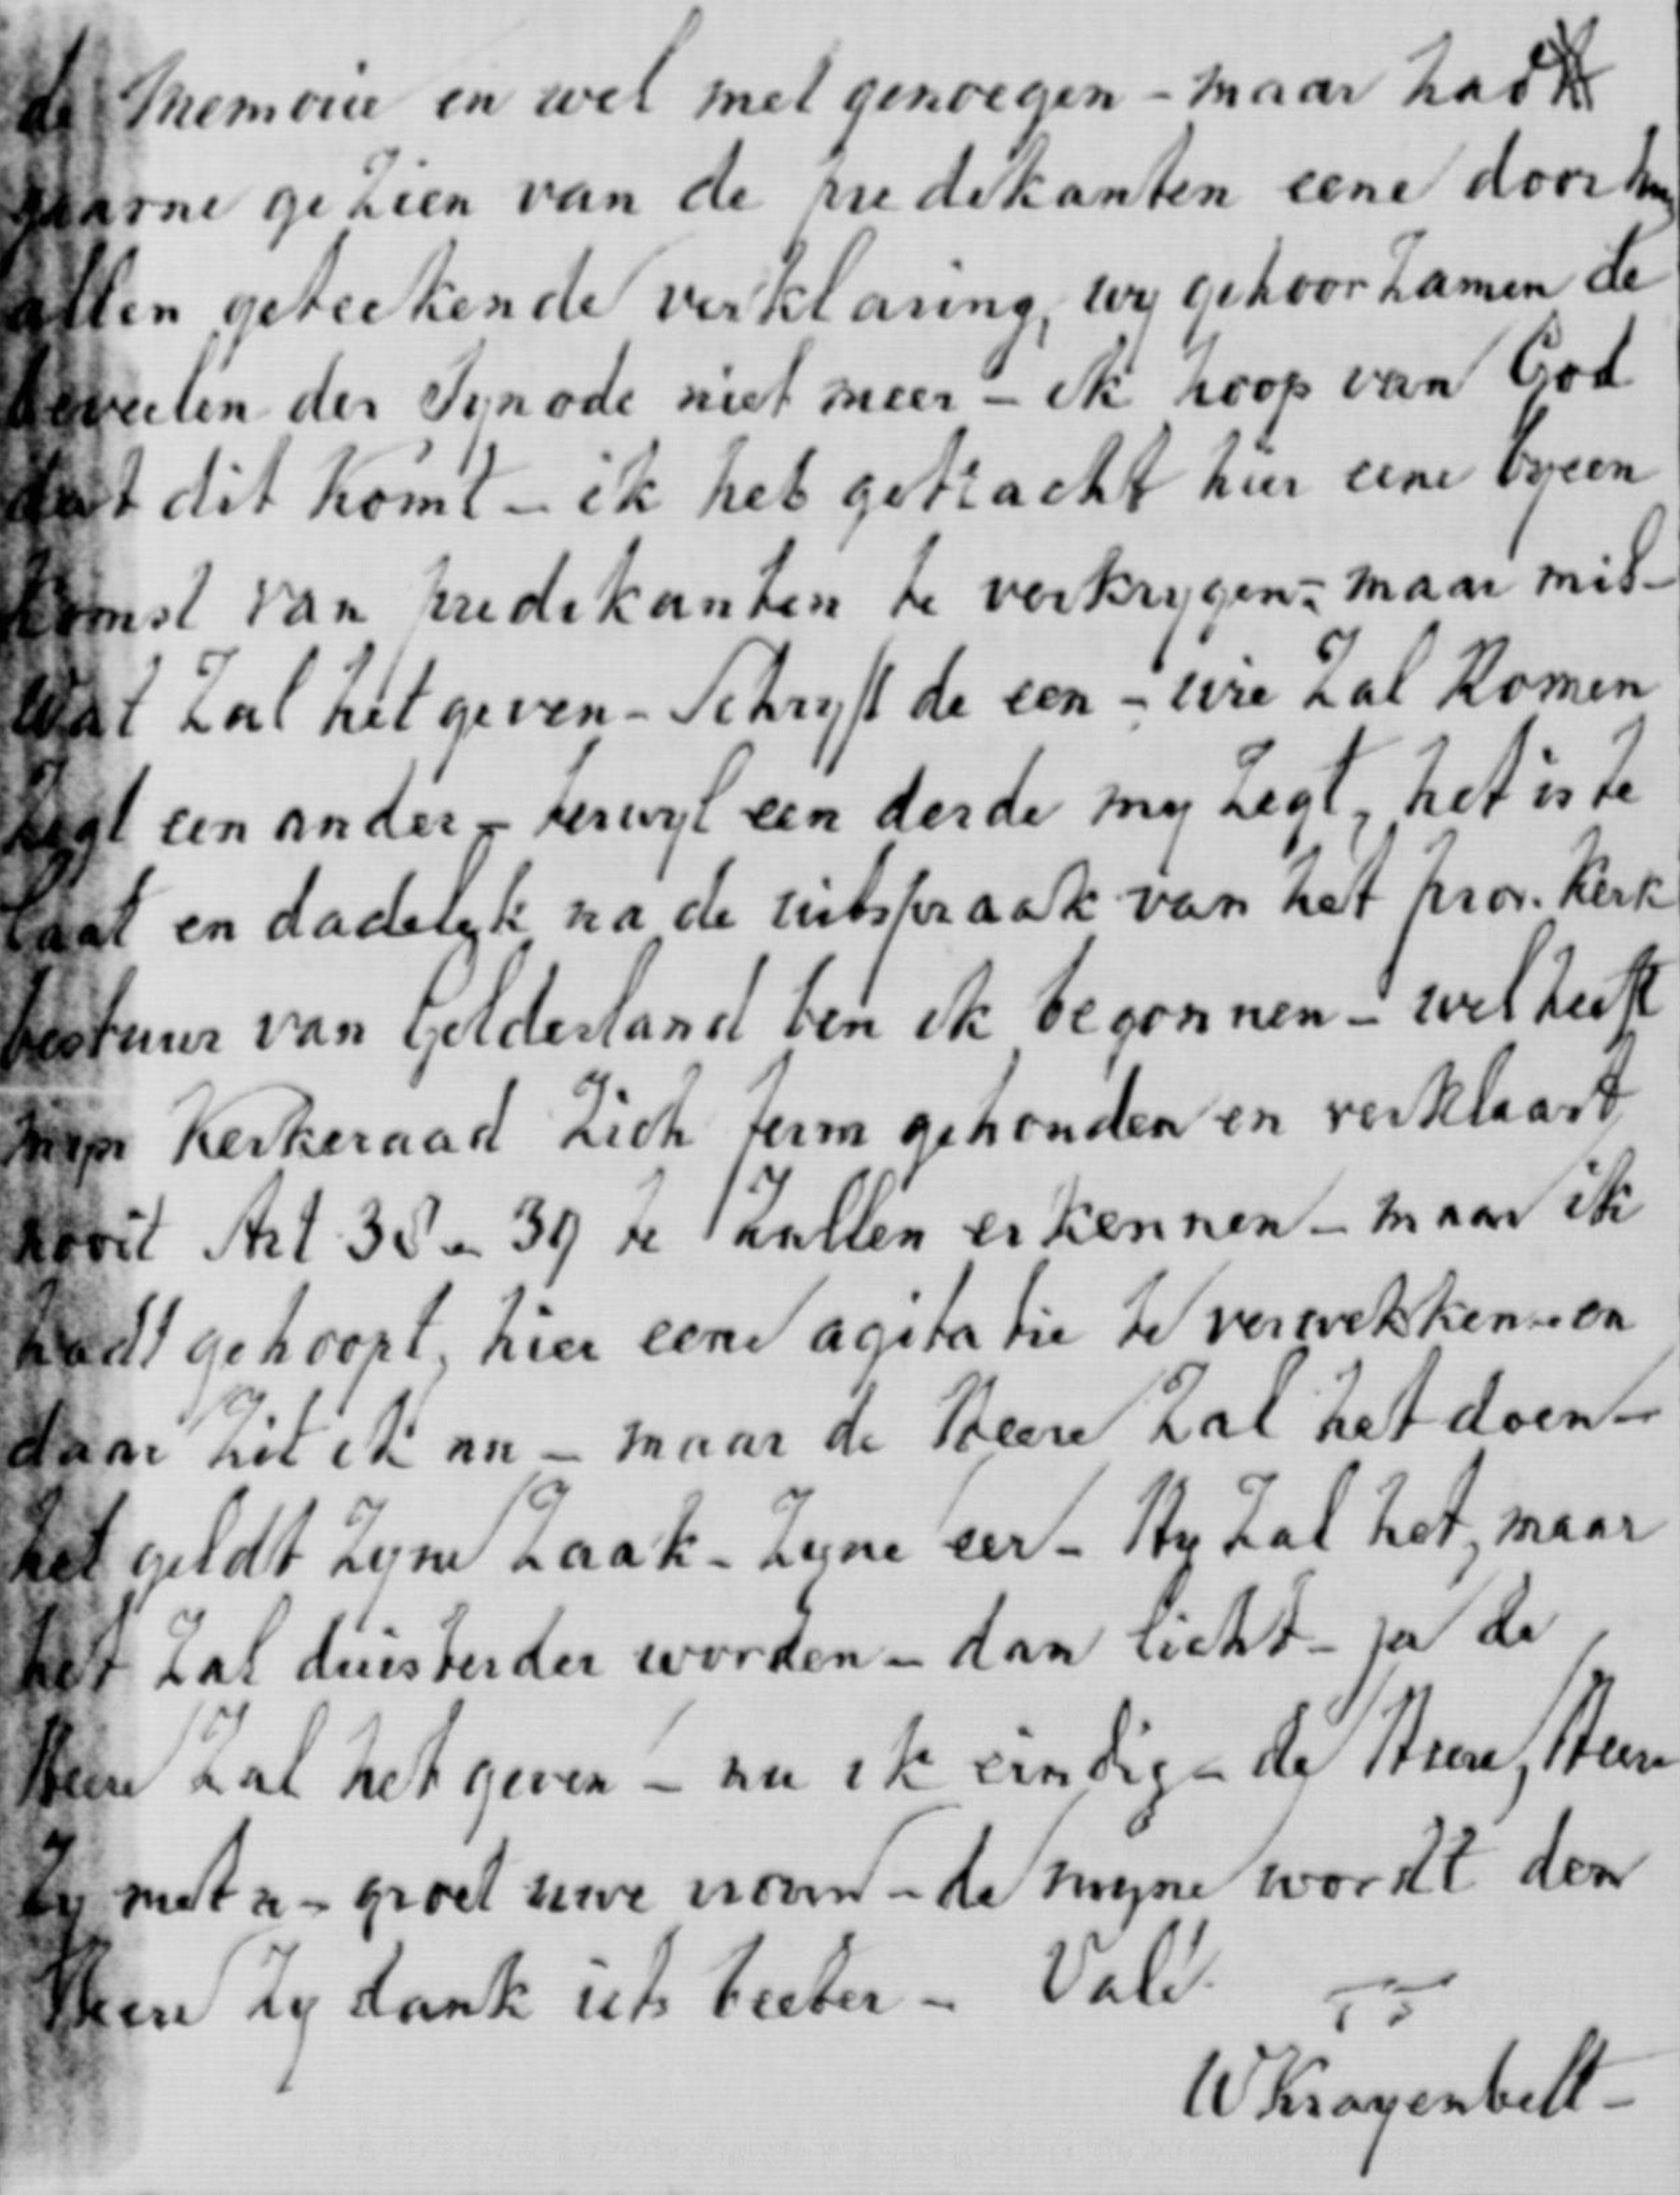 de Memorie en wel met genoegen - maar hadt
gaarne gezien van de predikanten eene door hun
allen geteekende verklaring, wy gehoorzamen de
bevelen der Synode niet meer - ik hoop van God
dat dit komt - ik heb getracht hier eene byeen
komst van predikanten te verkrygen - maar mis -
wat zal het geven - Schryft de een - wie zal komen
zegt een ander - terwyl een derde my zegt, het is te
laat en dadelyk na de uitspraak van het prov. Kerk
bestuur van Gelderland ben ik begonnen - wel heeft
myn Kerkeraad zich ferm gehouden en verklaart
nooit Art 38 - 39 te zullen erkennen - maar ik
hadt gehoopt, hier eene agitatie te verwekken - en
daar zit ik nu - maar de Heere zal het doen -
het geldt Zyne Zaak - Zyne eer - Hy zal het, maar
het zal duisterder worden - dan licht - ja de
Heere zal het geven - nu ik eindig - de Heere, Heere
zy met u - groet uwe vrouw - de myne wordt den
Heere zy dank iets beeter - Vale
TT
W Krayenbelt -